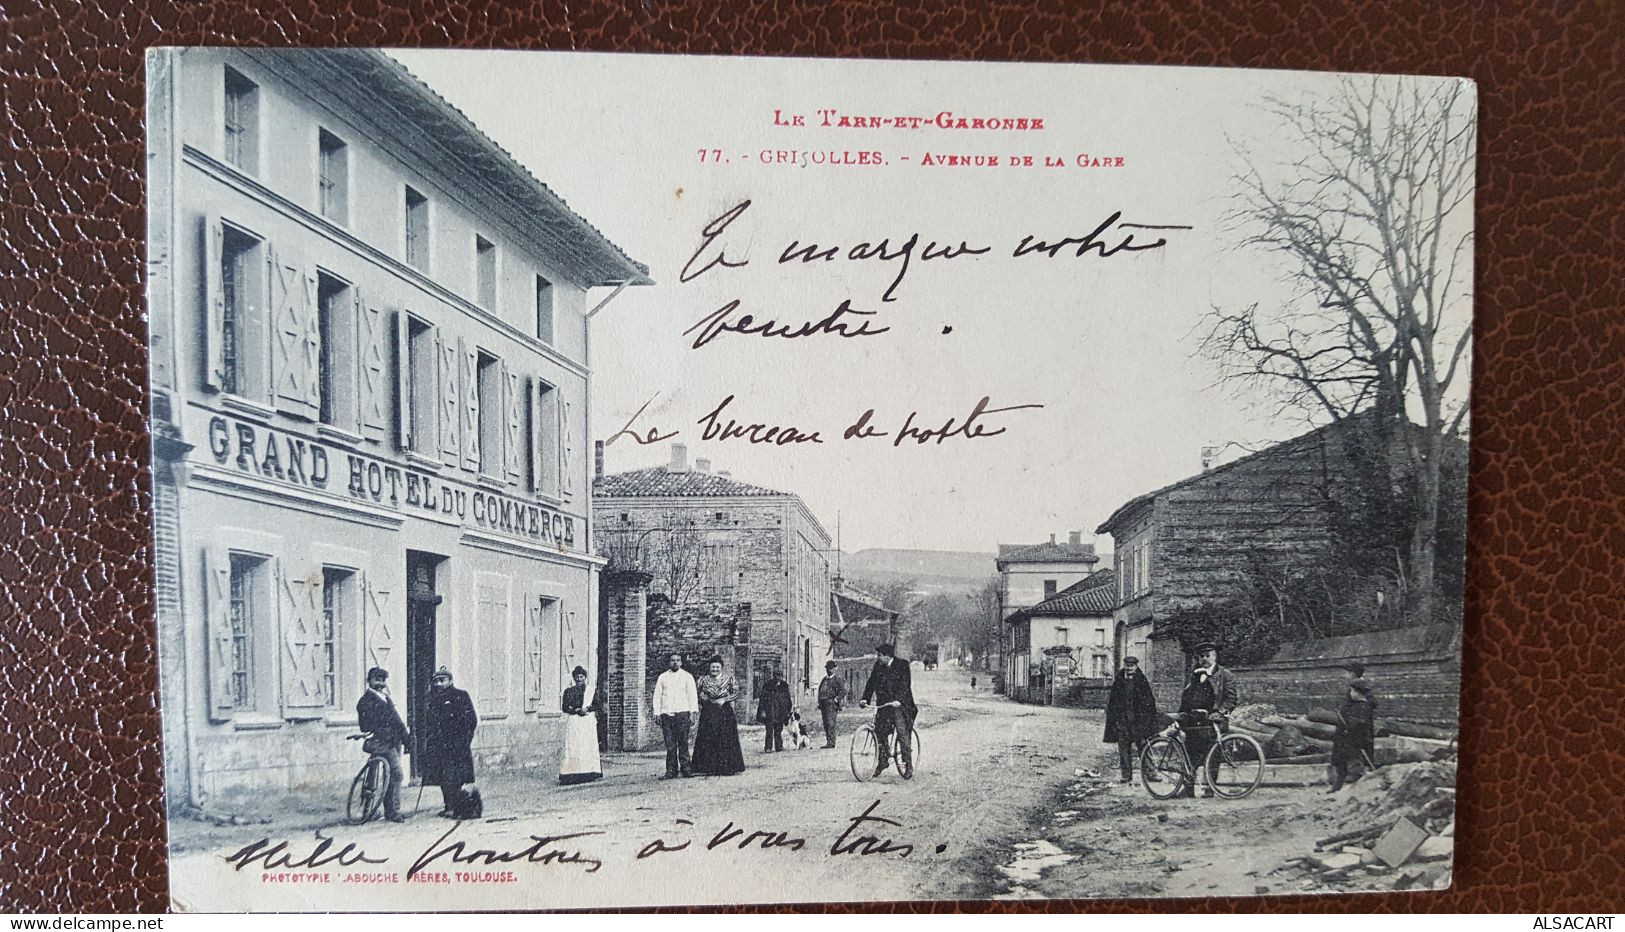 LE TARN-ET-GARONNE
77. - GRISOLLES. - AVENUE DE LA GARE
Je marque notre
fenetre .
Le bureau de poste
GRAND HOTEL DU COMMERCE
x
Mille à vous tous.
PHOTOTYPIE LABOUCHE FRÈRES, TOULOUSE.
ALSACART